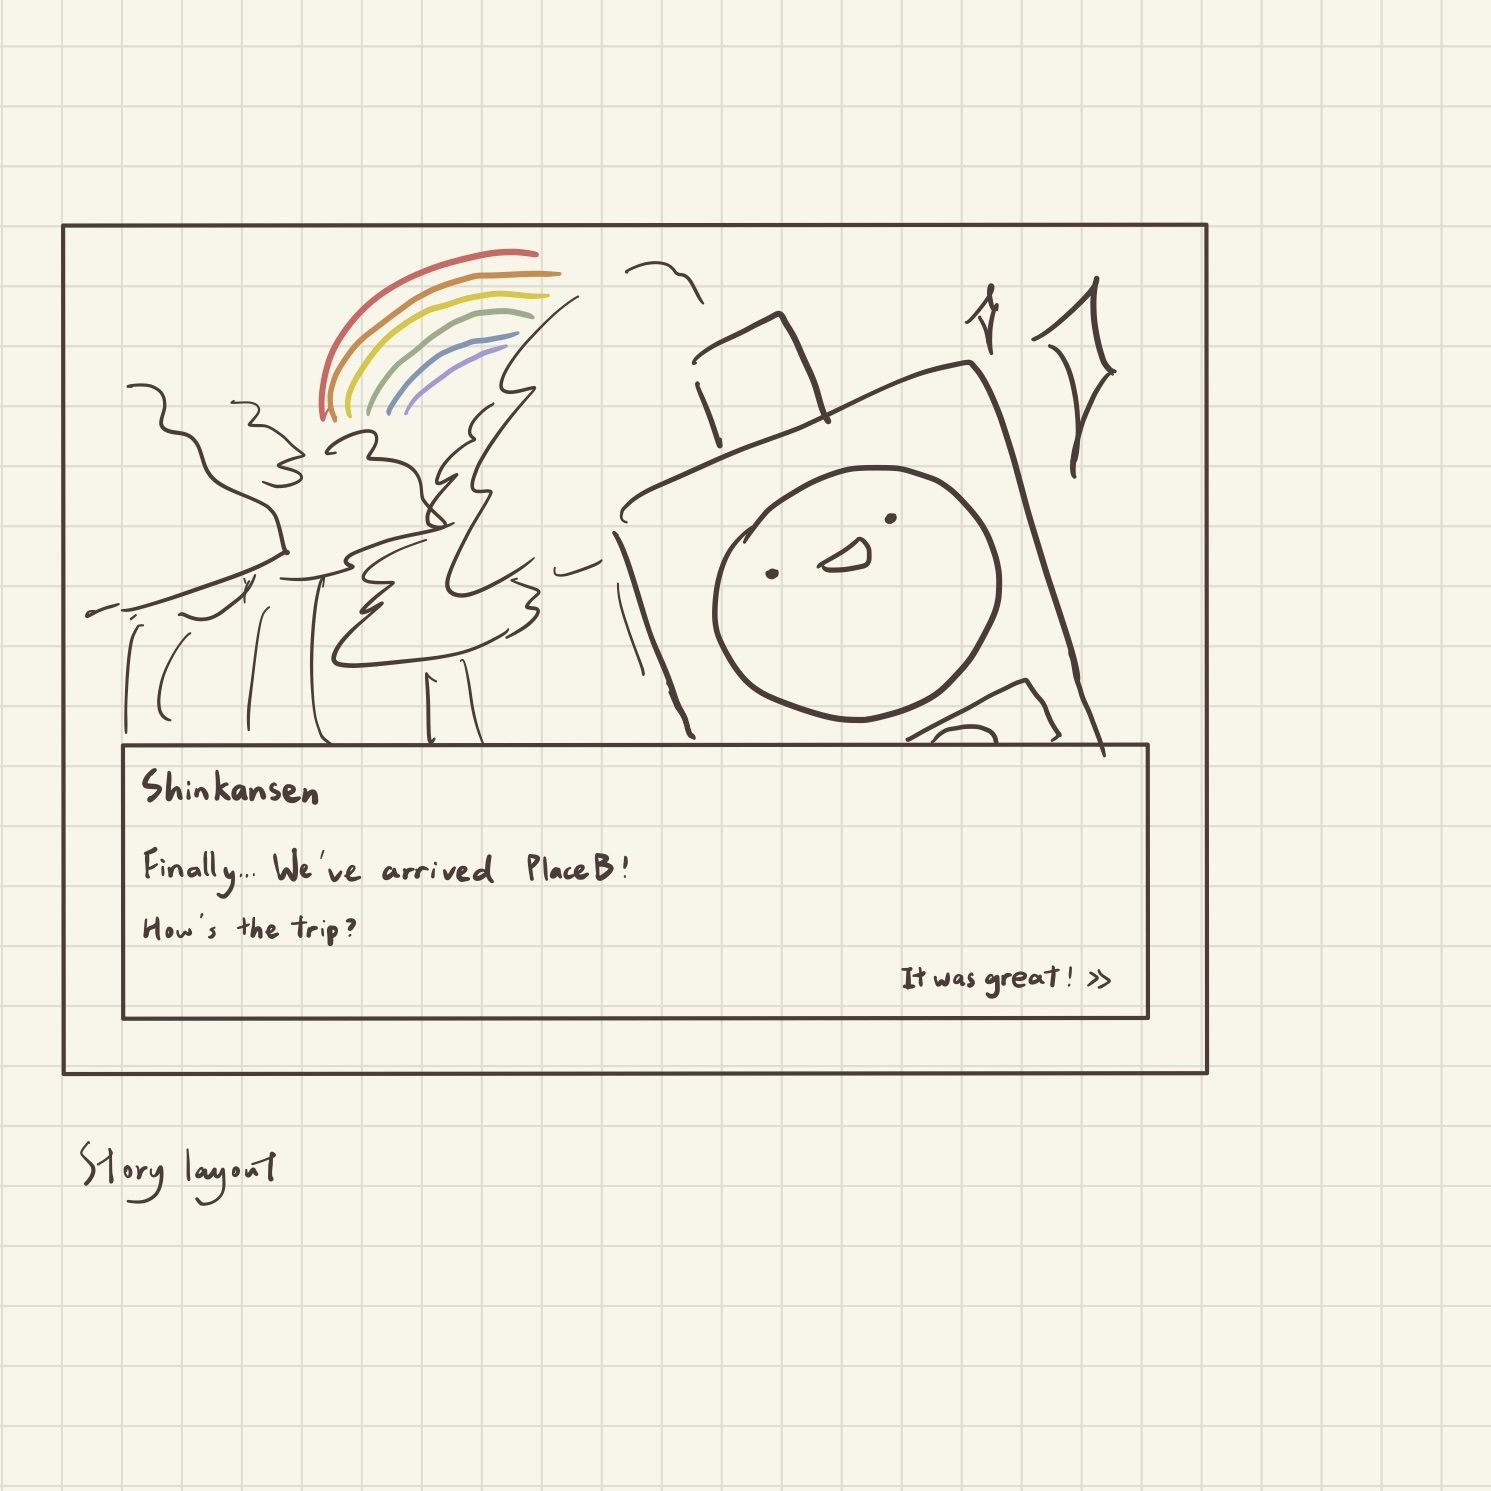 Shinkansen
Finally... We've arrived Place B!
How's the trip?
It was great! >>
Story layout